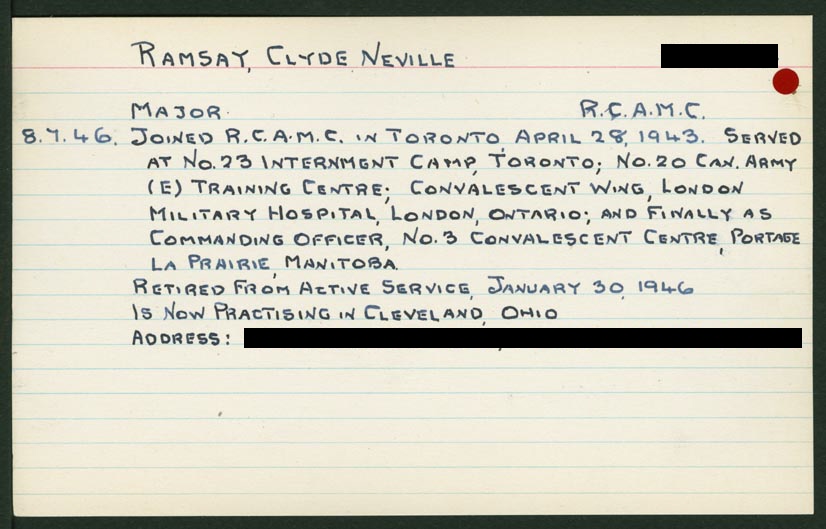 RAMSAY, CLYDE NEVILLE
MAJOR. R.C.A.M.C.
8.7.46. JOINED R.C.A.M.C. IN TORONTO, APRIL 28, 1943. SERVED
AT NO. 23 INTERNMENT CAMP, TORONTO; NO. 20 CAN. ARMY
(E) TRAINING CENTRE; CONVALESCENT WING, LONDON
MILITARY HOSPITAL, LONDON, ONTARIO; AND FINALLY AS
COMMANDING OFFICER, NO. 3 CONVALESCENT CENTRE, PORTAGE
LA PRAIRIE, MANITOBA.
RETIRED FROM ACTIVE SERVICE, JANUARY 30, 1946
IS NOW PRACTISING IN CLEVELAND, OHIO
ADDRESS: